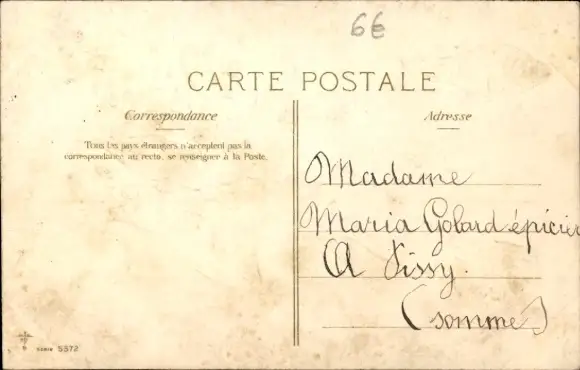 6€
CARTE POSTALE
Correspondance
Tous les pays étrangers n'acceptent pas la
correspondance au recto, se renseigner à la Poste.
Adresse
Madame
Maria Golard épicier
A Tissy.
(Somme)
SERIE 5372